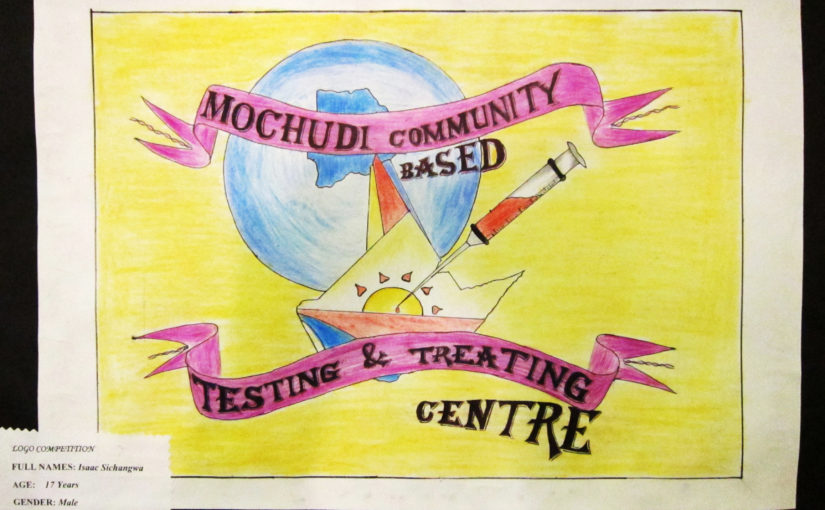 MOCHUDI COMMUNITY
BASED
TESTING & TREATING
CENTRE
LOGO COMPETITION
FULL NAMES: Isaac Sichangwa
AGE: 17 Years
GENDER: Male